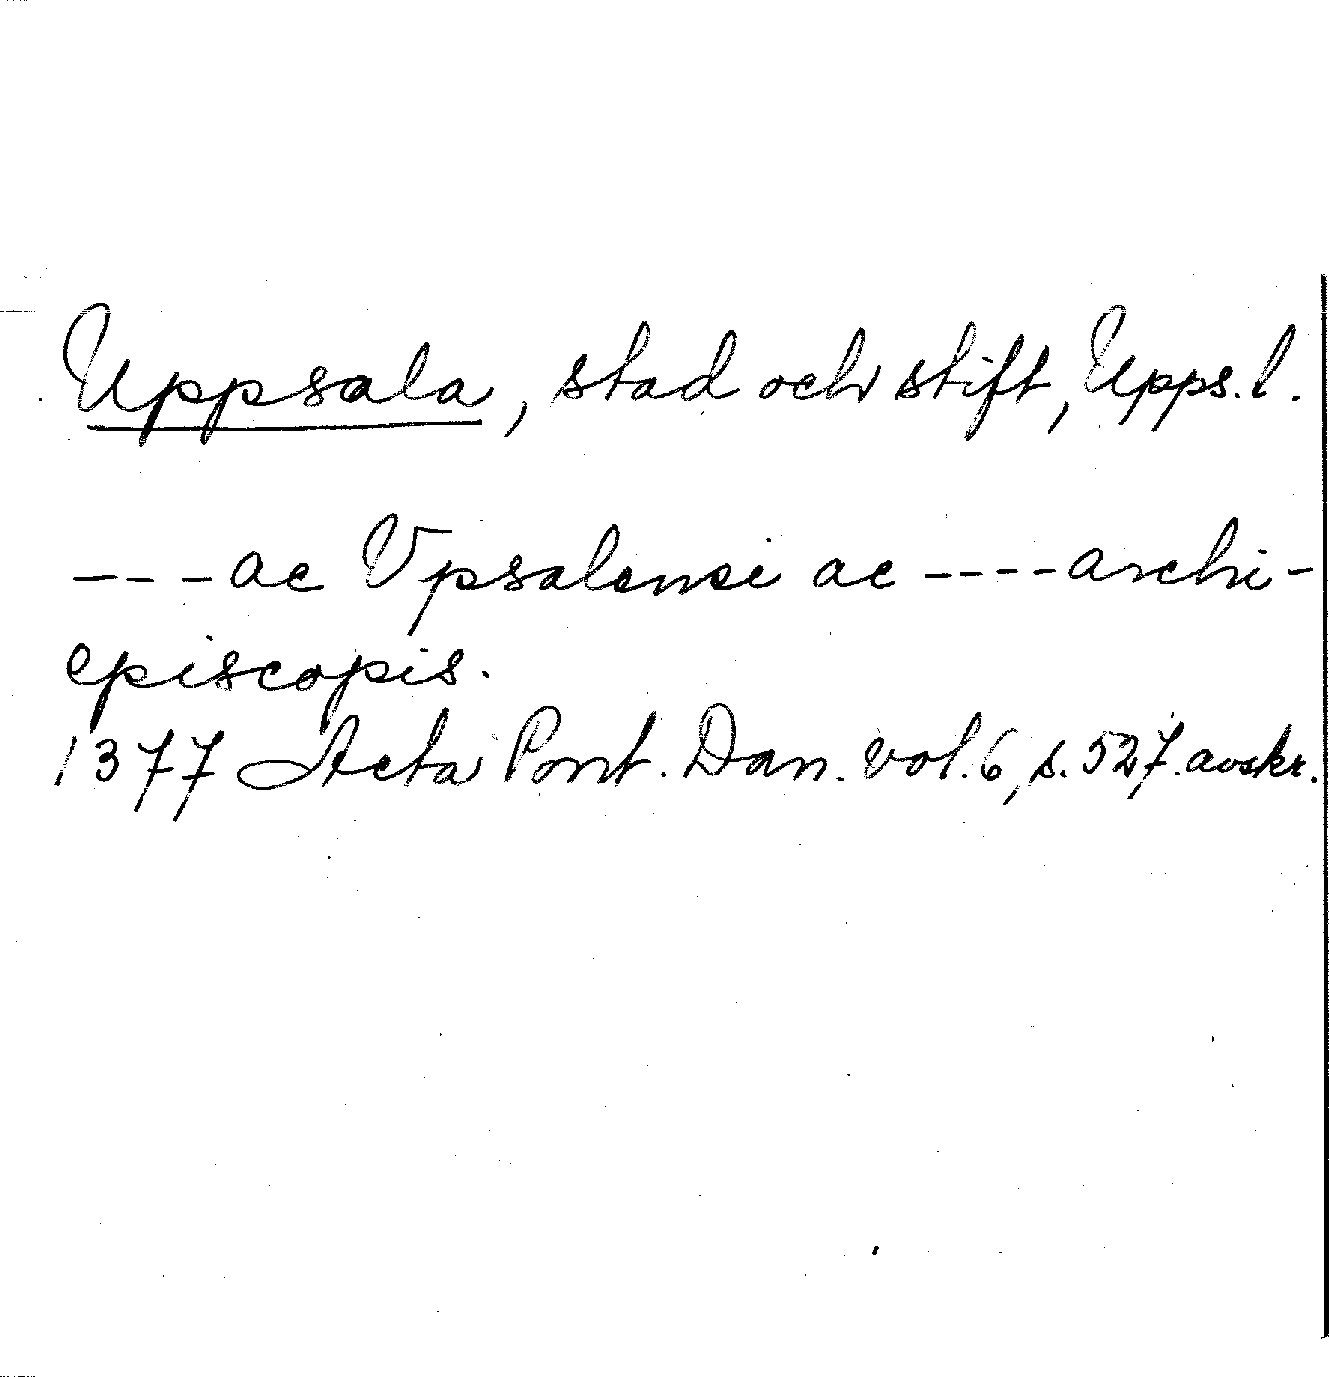 Uppsala, stad och stift, Upps. l.
---ac Vpsalensi ac ----archi-
episcopis.
1377 Acta Pont. Dan. vol. 6, s. 527. avskr.